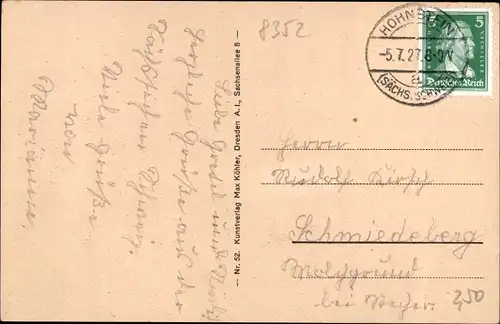 8352
HOHNSTEIN
-5.7.27.8-9V
a
(SÄCHS. SCHWEIZ)
5
SCHILLER
Deutsches Reich
Liebe Gretel und Rudi,
Herzliche Grüße aus der
Sächsischen Schweiz.
Viele Grüße
von
Marianne.
— Nr. 52. Kunstverlag Max Köhler, Dresden A. I., Sachsenallee 8 —
Herrn
Rudolf Kirsch
Schmiedeberg
bei
2,50